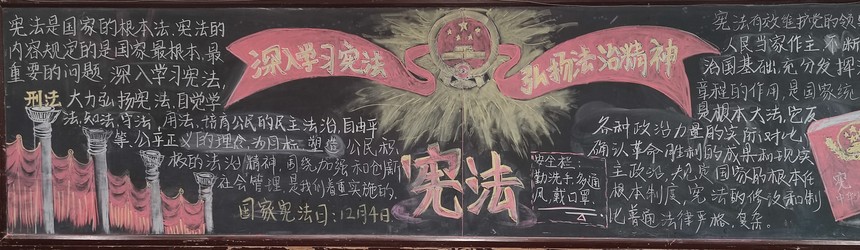 宪法是国家的根本法,宪法的
内容规定的是国家最根本、最
重要的问题 深入学习宪法,
刑法 大力弘扬宪法,自觉学
法,知法,守法,用法,培育公民的民主法治,自由平
等,公平正义的理念,为目标 塑造公民积
极的法治精神,围绕加强和创新
社会管理,是我们着重实施的,
国家宪法日:12月4日
深入学习宪法
弘扬法治精神
宪法
安全栏:
勤洗手,多通
风,戴口罩
宪法有效维护党的领
人民当家作主,不断
治国基础,充分发挥
章程的作用,是国家统
是根本大法,它反
各种政治力量的实际对比,
确认革命胜利的成果和现实
主政治,规定国家的根本任
根本制度,宪法的修改和制
比普通法律严格,复杂。
宪